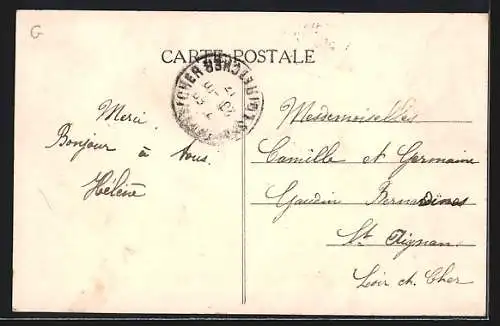 G
CARTE POSTALE
Merci
Bonjour
à tous.
Hélène
Mesdemoiselles
Camille et Germaine
Gaudin Bernardines
St Aignan
Loir et Cher